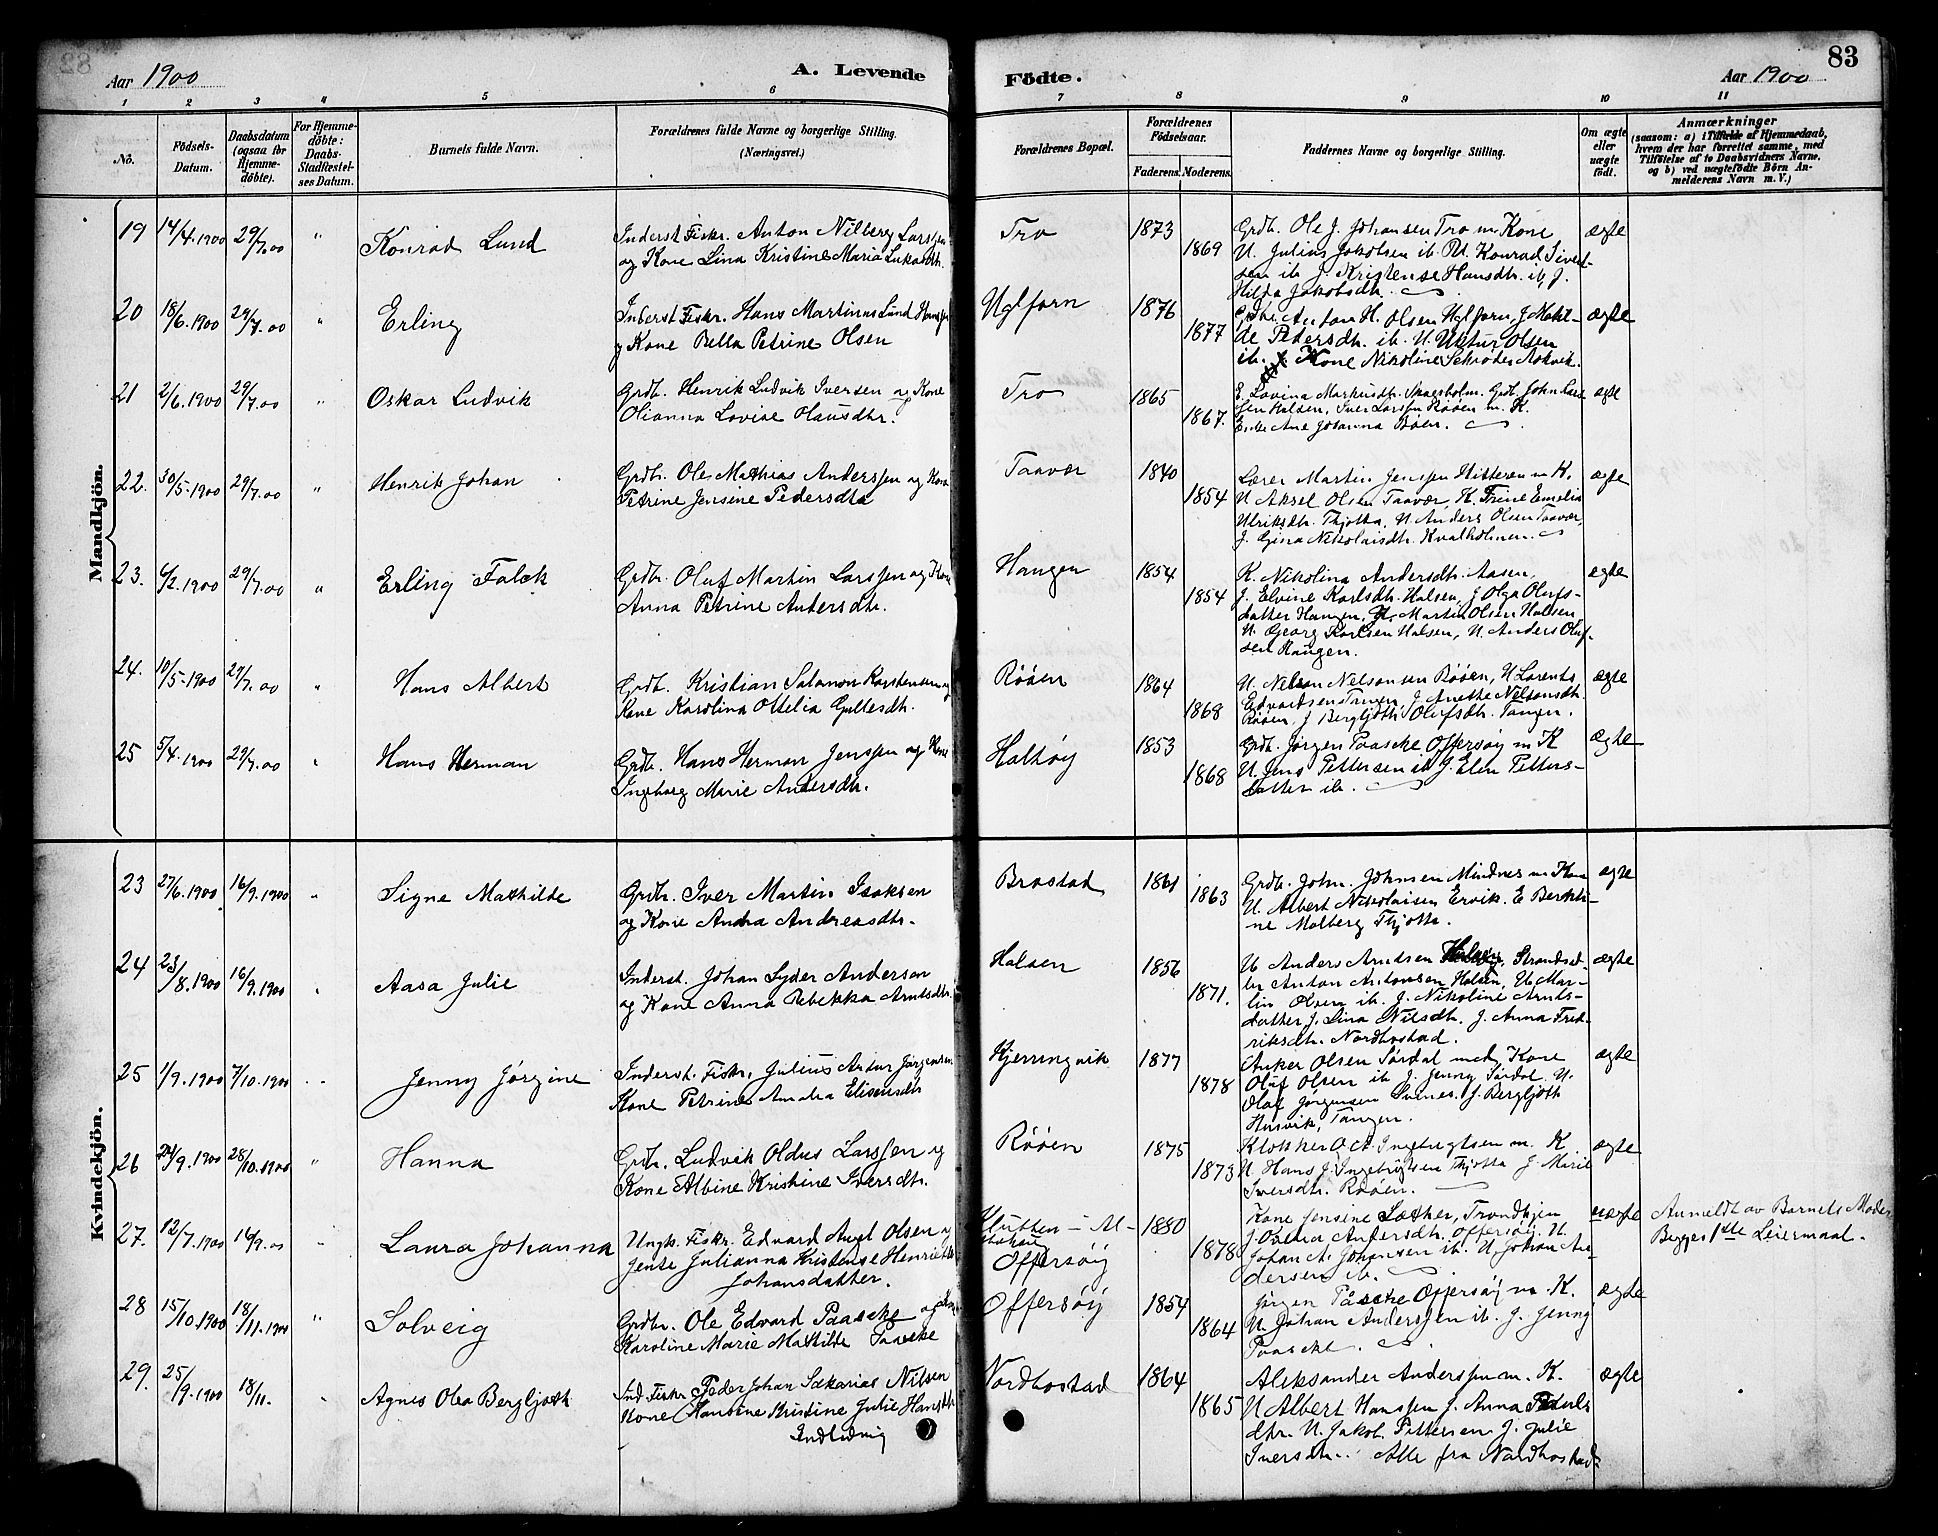 82
Aar 1900
A. Levende
Födte.
Aar 1900
83
1 2 3 4 5 6 7 8 9 10 11
No.
Födsels-
Datum.
Daabsdatum
(ogsaa for
Hjemme-
döbte).
For Hjemme-
döbte:
Daabs-
Stadfæstel-
ses Datum.
Barnets fulde Navn.
Forældrenes fulde Navne og borgerlige Stilling.
(Næringsvei.)
Forældrenes Bopæl.
Forældrenes
Födselsaar.
Faderens. Moderens.
Faddernes Navne og borgerlige Stilling.
Om ægte
eller
uægte
födt.
Anmærkninger
(saasom: a) i Tilfælde af Hjemmedaab,
hvem der har forrettet samme, med
Tilföielse af to Daabsvidners Navne,
og b) ved uægtefödte Börn An-
melderens Navn m. V.)
Mandkjön.
19 14/4.1900 29/7.00 " Konrad Lund
Inderst Fiskr. Anton Nilberg Larssen
og Kone Lina Kristine Maria Lukasdtr.
Tro 1873 1869
Grdb. Ole J. Johansen Tro m Kone
U. Julius Jakobsen ib. Konrad Sivert-
sen ib J. Kristense Hansdtr. ib, J.
Hilda Jakobsdtr.
ægte
20 18/6.1900 29/7.00 " Erling
Inderst Fiskr. Hans Martinus Lund Hanssen
og Kone Bella Petrine Olsen
Uglfarn 1876 1877
Anton H. Olsen Uglfarn, J. Mekt-
de Pedersdtr. ib. U. Viktur Olsen
ib. Kone Nikoline Schrøder Aakvik.
ægte
21 2/6.1900 29/7.00 " Oskar Ludvik
Grdb. Henrik Ludvik Iversen og Kone
Olianna Lovise Olausdtr.
Tro 1865 1867.
E. Lovina Markusdtr. Skagsholm. Grdb. John Lars-
sen Halsen, Iver Larssen Røøen m. K.
Enke Ane Johanna Røen.
ægte
22. 30/5.1900 29/7.00 " Henrik Johan
Grdb. Ole Mathias Anderssen og Kone
Petrine Jensine Pedersdtr
Taavær 1840 1854
Lærer Martin Jenssen Hitteren m K.
U. Aksel Olsen Taavær, K. Trine Emelia
Ulriksdtr. Thjotta, U. Anders Olsen Taavær,
J. Gina Nikolaisdtr. Kvalholmen.
ægte
23. 6/2.1900 29/7.00 " Erling Falck
Grdbr. Oluf Martin Larssen og Kone
Anna Petrine Andersdtr.
Hangen 1854 1854
K. Nikolina Andersdtr. Aasen,
J. Elvine Karlsdtr. Halsen, J Olga Olufs-
datter Hangen, U. Martin Olsen Halsen,
U. Georg Karlsen Halsen, U. Anders Oluf-
sen Hangen.
ægte
24. 10/5.1900 29/7.00 " Hans Albert
Grdb. Kristian Salamon Karstensen og
Kone Karolina Ottelia Gullesdtr.
Røøen 1864 1868
U. Nelson Nelsonsen Røøen, U Lorents
Edvardsen Tangen J. Anethe Nelsonsdtr.
Røøen, J Bergljoth Olufsdtr. Tangen.
ægte
25 5/4.1900 29/7.00 " Hans Herman
Grdb. Hans Herman Jenssen og Kone
Ingeborg Marie Andersdtr.
Haltøy 1853 1868
Grdb. Jørgen Paascke Offersøy m K
U. Jens Pettersen ib J. Elen Petters-
datter ib.
ægte
Kvindekjön.
23 27/6.1900 16/9.1900 " Signe Mathilde
Grdbr. Iver Martin Isaksen
og Kone Andrea Andreasdtr.
Brastad 1861 1863
Grdb. John. Johnsen Mindnes m Kone
U. Albert Nikolaisen Ervik. E Bernti-
ne Molberg Thjotta.
ægte
24 23/8.1900 16/9.1900 " Aasa Julie
Inderst. Johan Syder Anderson
og Kone Anna Rebekka Arntsdtr.
Halsen 1856 1871.
U Anders Arntsen Halsøy, Strandsid-
der Anton Antonsen Halsen, U. Mar-
tin Olsen ib. J. Nikoline Arnts-
datter J. Lina Nilsdtr. J. Anna Fred-
riksdtr. Nordhostad.
ægte
25 1/9.1900 7/10.1900 " Jenny Jørgine
Inderst. Fiskr. Julius Artur Jørgensen
Kone Petrine Andrea Eliseusdtr
Kjerringvik 1877 1878
Anker Olsen Sørdal med Kone
Oluf Olsen ib J. Jenny Sørdal U.
Olaf Jørgensen Svines, J. Bergljoth
Husvik, Tangen.
ægte
26 24/9.1900 28/10.1900 " Hanna
Grdb. Ludvik Oldus Larssen og
Kone Albine Kristine Iversdtr.
Røøen 1875 1873
Klokker O. A. Ingebrigtsen m. K
U. Hans J. Ingebrigtsen Thjotta J. Marie
Iversdtr. Røøen.
ægte
27. 12/7.1900 16/9.00 " Laura Johanna
Ungk. Fiskr. Edvard Augt Olsen og
Jente Julianna Kristense Henriette
Johansdatter.
Offersøy 1880 1878
Kone Jensine Sæther, Trondhjem
J. Ovedia Andersdtr. Offersøy, U.
Johan A. Johansen ib. U. Johan An-
dersen ib.
uægte
Anmeldt av Barnets Moder
Begges 1ste Leiermaal.
28 15/10.1900 18/11.1900 " Solveig
Grdbr. Ole Edvard Paascke og Kone
Karoline Marie Mathilde Paascke
Offersøy 1854 1864
Jørgen Paascke Offersøy m. K.
U. Johan Anderssen ib. J. Jenny
Paascke.
ægte
29. 25/9.1900 18/11. " Agnes Olea Bergljoth
Ind. Fiskr Peder Johan Sakarias Nilsen
Kone Hansine Kristine Julie Hansdtr
Indledning
Nordhostad 1864 1865
Aleksander Anderssen m. K.
U Albert Hanssen J. Anna Peders
dtr. U. Jakob Pettersen J. Julie
Iversdtr. Alle fra Nordhostad
ægte